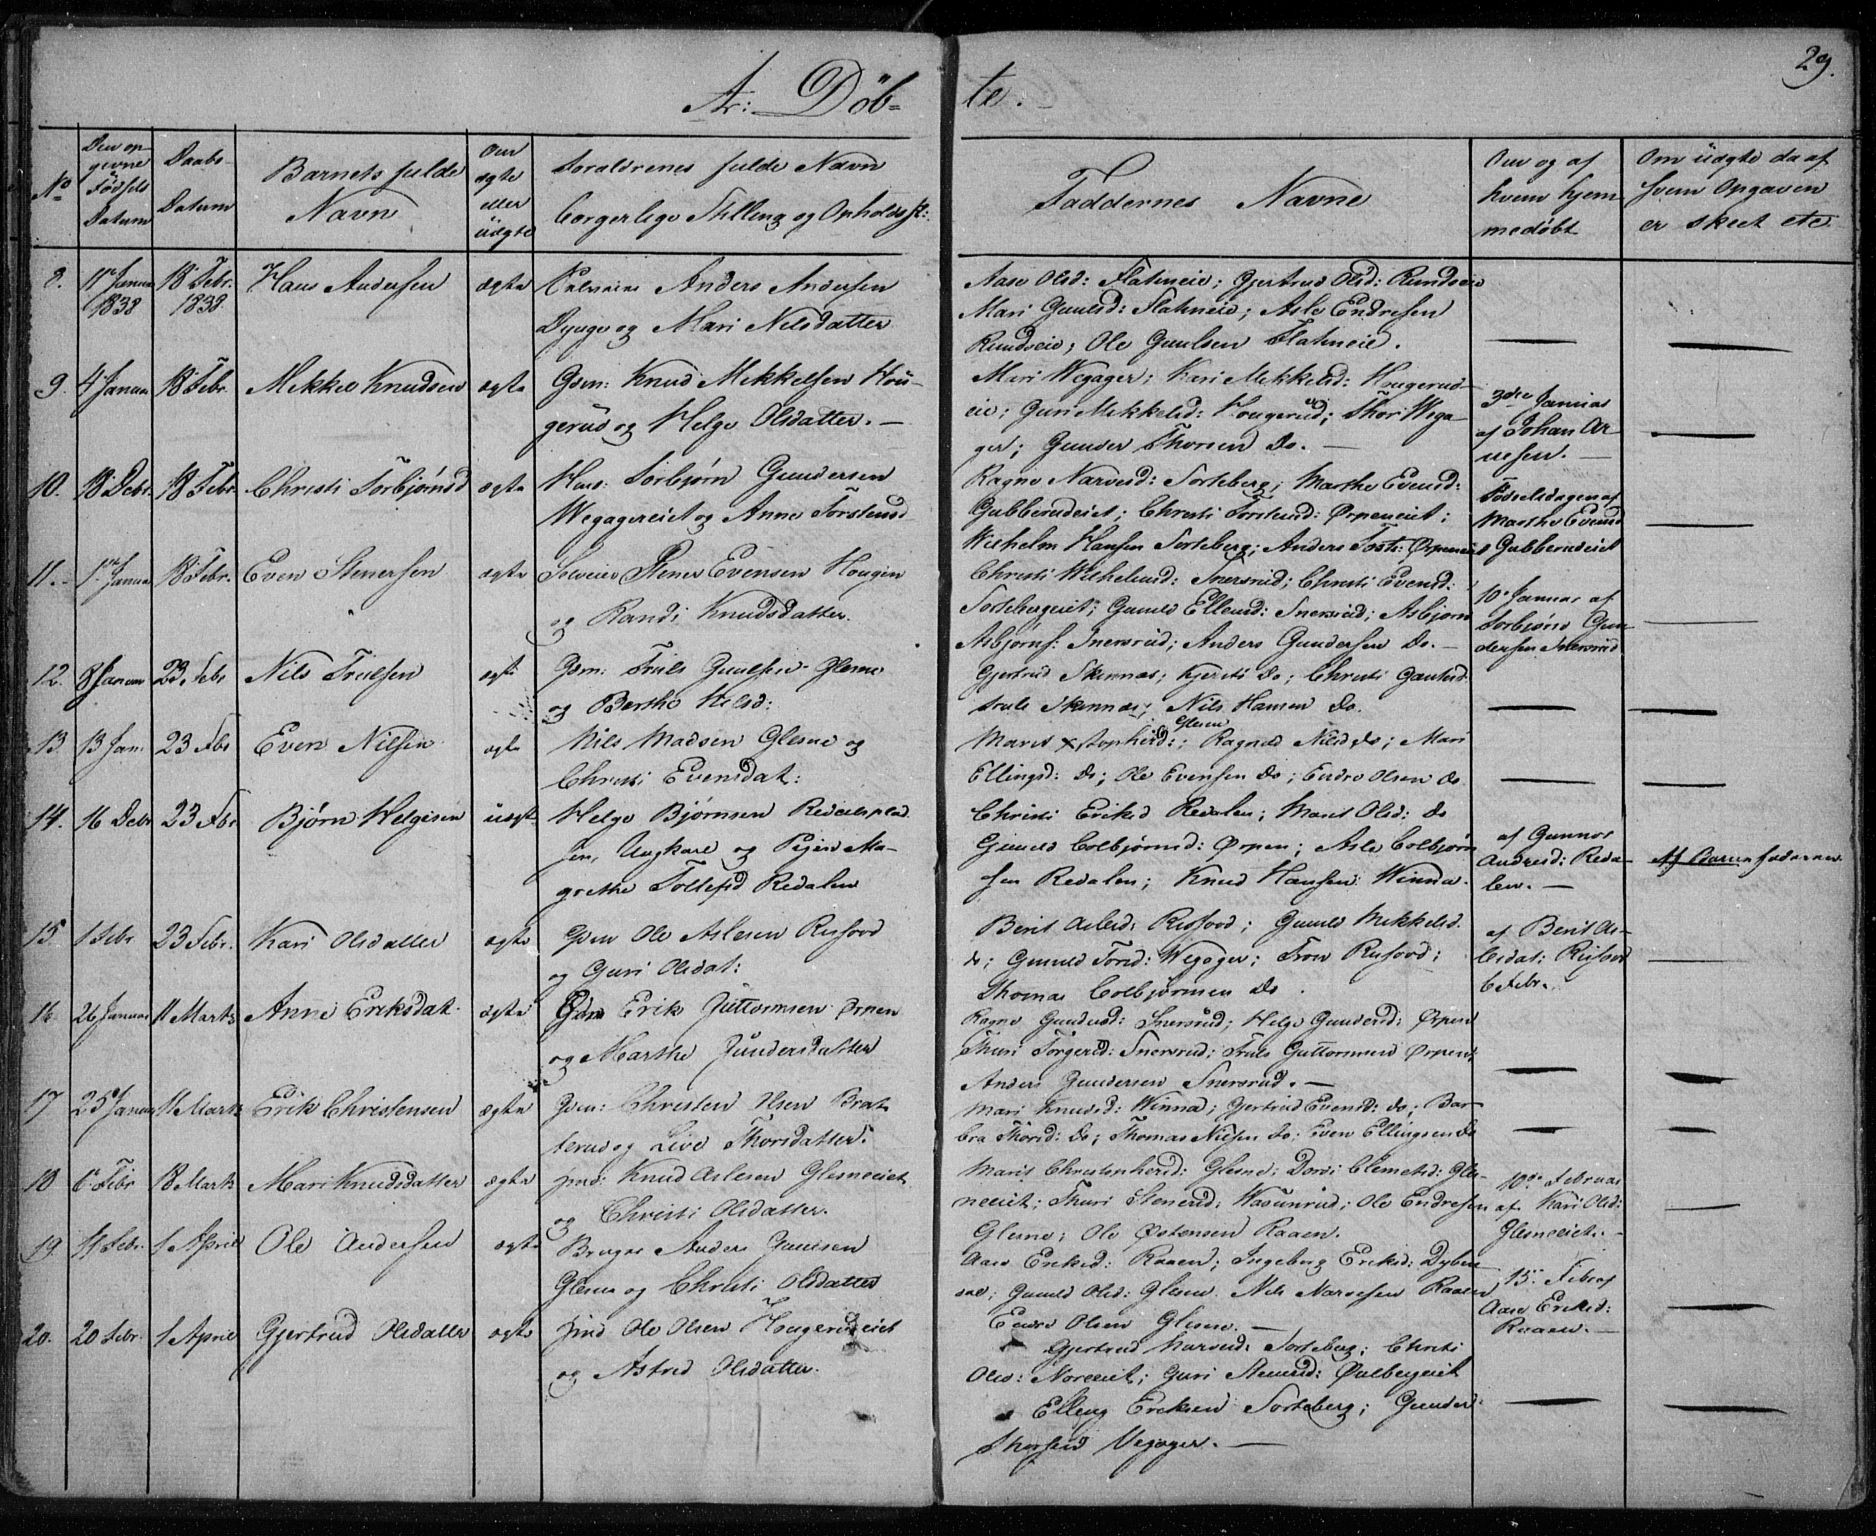 29.
Ar: Döb-
te.
No
Den op-
givne
Födsels
Datum
Daabs-
Datum
Barnets fulde
Navn
Om
ægte
eller
uægte
Foraldrenes fulde Navn
borgerlige Stilling og Opholds st:
Faddernes Navne
Om og af
hvem hjem
medöbt
Om uægte da af
hvem Opgaven
er skeet etc
8. 11te Januar 18 Febr. Hans Andersen ægte Anders Andersen
1838 1838. Dynge og Mari Nilsdatter
Aase Olsd: Flatneie; Gjertrud Olsd: Rundseie
Mari Guulsd: Flatneie; Asle Endresen
Rundseie; Ole Guulsen Flatneie.
9. 4 Januar 18 Febr. Mekkel Knudsen ægte Gdm: Knud Mekkelsen Hou-
gerud og Helge Olsdatter.
Mari Wegager; Kari Mekkelsd: Hougerud-
eie; Guri Mekkelsd: Hougerud; Thor Wega-
ger; Gunder Thorsen do.
3die Januar
af Johan Ar-
nesen.
10. 18 Debr. 18 Febr. Christi Torbjörnsd ægte Huus: Torbjørn Gundersen
Wegagereiet og Anne Torstensd
Ragne Narvesd: Sorteberg; Marthe Evensd:
Gubberudeiet; Christi Torstensd: Ørpeneiet;
Wilhelm Hansen Sorteberg; Anders Torst: Ørpeneiet
Födselsdagen af
Marthe Evensd
Gubberudeiet
11. 1te Januar 18 Febr. Even Stenersen ægte Stener Evensen Hougen
og Randi Knudsdatter.
Christi Wilhelmsd: Snersrud; Christi Evensd:
Sortebergeiet; Gunild Ellensd: Snersrud; Asbjørn
Asbjørns: Snersrud; Anders Gundersen do.
10 Januar af
Torbjørn Gun-
dersen Snersrud
12. 8 Januar 23 Febr Nils Trulsen ægt Gdm: Truls Guulsen Glesne
og Berthe Nilsd:
Gjertrud Skinnæs; Kjersti do; Christi Gaulsd.
Truls Skinnæs; Nils Hansen do.
13. 13 Jan. 23 Fbr Even Nilsen ægt Nils Madsen Glesne og
Christi Evensdat:
Glesne
Marit Xstophersd:; Ragnild Nilsd do; Mari
Ellingsd: do; Ole Evensen do; Endre Olsen do
14. 16 Debr 23 Fbr Bjørn Helgesen uægt. Helge Bjørnsen Redalspl
Ungkarl og Pigen Ma-
grethe Tollefsd Redalen
Christi Eriksd Redalen; Marit Olsd: do
Gunild Colbjørnsd: Ørpen; Asle Colbjørn-
sen Redalen; Knud Hansen Winna.
af Gunnor
Andresd: Reda-
len.
Af Barnefaderen
15. 1 Febr 23 Febr. Kari Olsdatter ægte Gdm Ole Aslesen Rusfood
og Guri Olsdat:
Berit Aslesd: Rusfood; Gunild Mekkelsd.
do; Gunild Tord: Wegager; Tron Rusfood;
Thomas Colbjørnsen do.
af Berit As-
lesdat: Rusfood
6 Febr.
16. 26 Januar 11 Marts Anne Eriksdat. ægte Gdm Erik Guttormsen Ørpen
og Marthe Gundersdatter
Ragne Gundersd: Snersrud; Helge Gundersd: Ørpen
Thuri Torgersd: Snersrud; Truls Guttormsen Ørpen;
Anders Gundersen Snersrud.
17 25 Januar 11 Marts Erik Christensen ægte Gdm: Christen Olsen Brat-
terud og Live Thorsdatter.
Mari Knudsd: Winna; Gjertrud Evensd: do; Bar-
bra Thorsd: do; Thomas Nilsen do; Even Ellingsen do
18 6 Febr 18 Marts Mari Knudsdatter ægte Knud Aslesen Glesneeiet
og Christi Olsdatter.
Marit Christophersd: Glesne; Dordi Clemetsd: Gles-
neeiet; Thuri Stenersd: Wasunrud; Ole Endresen
Glesne; Ole Østensen Raaen.
10de Februar
af Kari Olsd:
Glesneeiet.
19. 11 Febr. 1 April Ole Andersen ægte Bruger Anders Guulsen
Glesne og Christi Olsdatter
Aase Eriksd: Raaen; Ingeborg Eriksd: Dyben-
dal; Gunild Olsd: Glesne. Nils Narvesen Raaen
Endre Olsen Glesne.
15 Feb af
Aase Eriksd:
Raaen.
20. 20 Febr. 1 April Gjertrud Olsdatter ægte Ind Ole Olsen Hougerudeiet
og Astrid Olsdatter.
Gjertrud Narvesd: Sorteberg; Christi
Olsd: Noreeiet; Guri Stenersd: Øvlbergeiet
Elling Eriksen Sorteberg; Gunder
Thorsen Vegager.